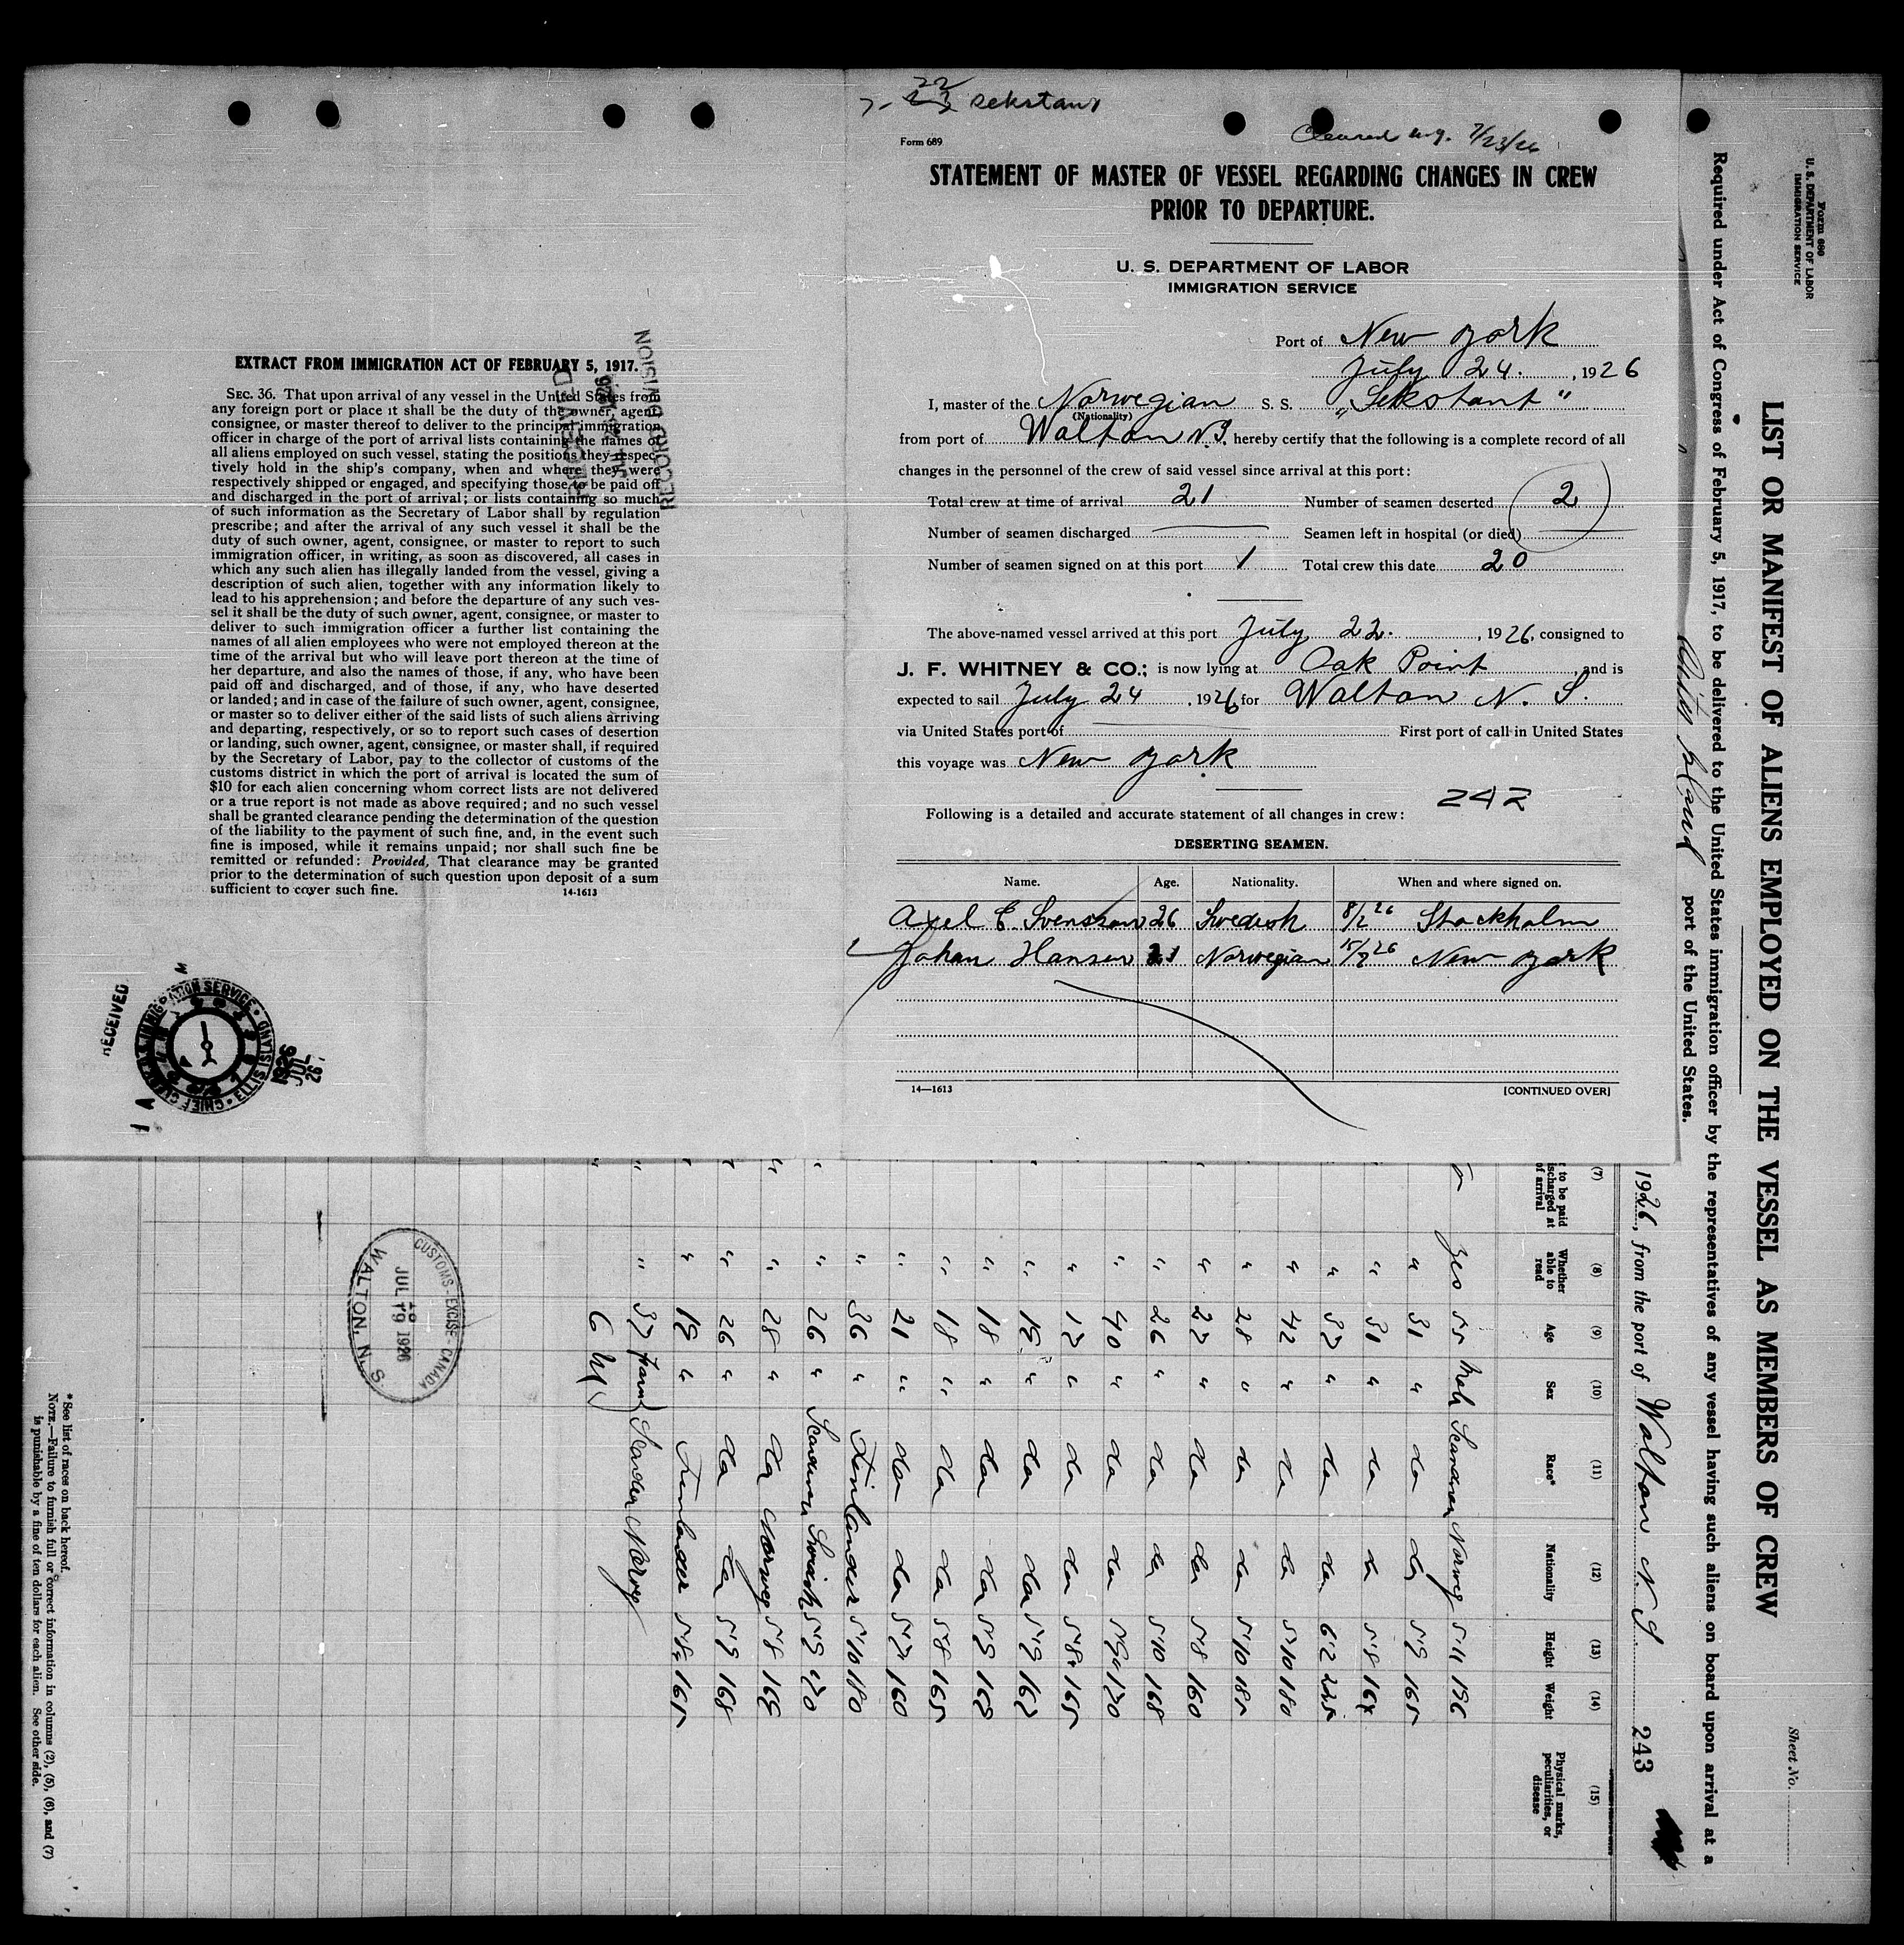 22
7-23 Sekstant
Cleared N.Y. 7/23/26
Form 689
STATEMENT OF MASTER OF VESSEL REGARDING CHANGES IN CREW
PRIOR TO DEPARTURE.
U. S. DEPARTMENT OF LABOR
IMMIGRATION SERVICE
Port of New York
July 24. , 1926
I, master of the Norwegian S. S. „Sekstant"
(Nationality)
from port of Walton N.S. hereby certify that the following is a complete record of all
changes in the personnel of the crew of said vessel since arrival at this port:
Total crew at time of arrival 21 Number of seamen deserted 2
Number of seamen discharged Seamen left in hospital (or died)
Number of seamen signed on at this port 1 Total crew this date 20
The above-named vessel arrived at this port July 22. , 1926, consigned to
J. F. WHITNEY & CO.; is now lying at Oak Point , and is
expected to sail July 24 , 1926 for Walton N. S.
via United States port of First port of call in United States
this voyage was New York
242
Following is a detailed and accurate statement of all changes in crew:
DESERTING SEAMEN.
Name. Age. Nationality. When and where signed on.
Axel E. Svensson 26 Swedish 8/2 26 Stockholm
Johan Hansen 21 Norwegian 15/7 26 New York
14—1613 [CONTINUED OVER]
EXTRACT FROM IMMIGRATION ACT OF FEBRUARY 5, 1917.
SEC. 36. That upon arrival of any vessel in the United States from
any foreign port or place it shall be the duty of the owner, agent,
consignee, or master thereof to deliver to the principal immigration
officer in charge of the port of arrival lists containing the names of
all aliens employed on such vessel, stating the positions they respec-
tively hold in the ship's company, when and where they were
respectively shipped or engaged, and specifying those to be paid off
and discharged in the port of arrival; or lists containing so much
of such information as the Secretary of Labor shall by regulation
prescribe; and after the arrival of any such vessel it shall be the
duty of such owner, agent, consignee, or master to report to such
immigration officer, in writing, as soon as discovered, all cases in
which any such alien has illegally landed from the vessel, giving a
description of such alien, together with any information likely to
lead to his apprehension; and before the departure of any such ves-
sel it shall be the duty of such owner, agent, consignee, or master to
deliver to such immigration officer a further list containing the
names of all alien employees who were not employed thereon at the
time of the arrival but who will leave port thereon at the time of
her departure, and also the names of those, if any, who have been
paid off and discharged, and of those, if any, who have deserted
or landed; and in case of the failure of such owner, agent, consignee,
or master so to deliver either of the said lists of such aliens arriving
and departing, respectively, or so to report such cases of desertion
or landing, such owner, agent, consignee, or master shall, if required
by the Secretary of Labor, pay to the collector of customs of the
customs district in which the port of arrival is located the sum of
$10 for each alien concerning whom correct lists are not delivered
or a true report is not made as above required; and no such vessel
shall be granted clearance pending the determination of the question
of the liability to the payment of such fine, and, in the event such
fine is imposed, while it remains unpaid; nor shall such fine be
remitted or refunded: Provided, That clearance may be granted
prior to the determination of such question upon deposit of a sum
sufficient to cover such fine. 14-1613
RECORD DIVISION
RECEIVED
IMMIGRATION SERVICE
CHIEF CLERK ELLIS ISLAND
1926
JUL
26
Form 680
U. S. DEPARTMENT OF LABOR
IMMIGRATION SERVICE
Sheet No.
LIST OR MANIFEST OF ALIENS EMPLOYED ON THE VESSEL AS MEMBERS OF CREW
Required under Act of Congress of February 5, 1917, to be delivered to the United States immigration officer by the representatives of any vessel having such aliens on board upon arrival at a
port of the United States.
1926, from the port of Walton N.S 243
(7) (8) (9) (10) (11) (12) (13) (14) (15)
to be paid
discharged at
of arrival
Whether able to read
Age
Sex
Race*
Nationality
Height
Weight
Physical marks, peculiarities, or disease
yes 55 Male Scandinav Norweg 5'11 196
" 31 " do do 5'9 165
" 31 " do do 5'8 164
" 37 " do do 6'2 225
" 42 " do do 5'10 180
" 28 " do do 5'10 185
" 27 " do do 5'8 160
" 26 " do do 5'10 168
" 40 " do do 170
" 17 " do do 5'8 165
" 19 " do do 5'9 162
" 18 " do do 5'9 162
" 18 " do do 5'8 165
" 21 " do do 5'7 160
" 36 " Finlander 5'10 180
" 26 " Scandinav Swedish 5'9 170
" 28 " do Norweg 5'8 166
" 26 " do do 5'9 168
" 19 " Finlander 165
" 37 Norweg
CUSTOMS-EXCISE-CANADA
JUL 19 1926
WALTON, N.S.
* See list of races on back hereof.
NOTE.—Failure to furnish full or correct information in columns (2), (5), (6), and (7)
is punishable by a fine of ten dollars for each alien. See other side.